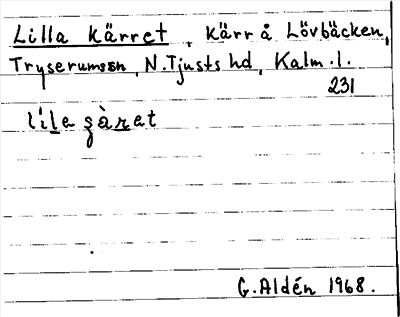 Lilla kärret, kärr å Lövbäcken,
Tryserums sn, N. Tjusts hd, Kalm. l.
231
lile çàret
G. Aldén 1968.